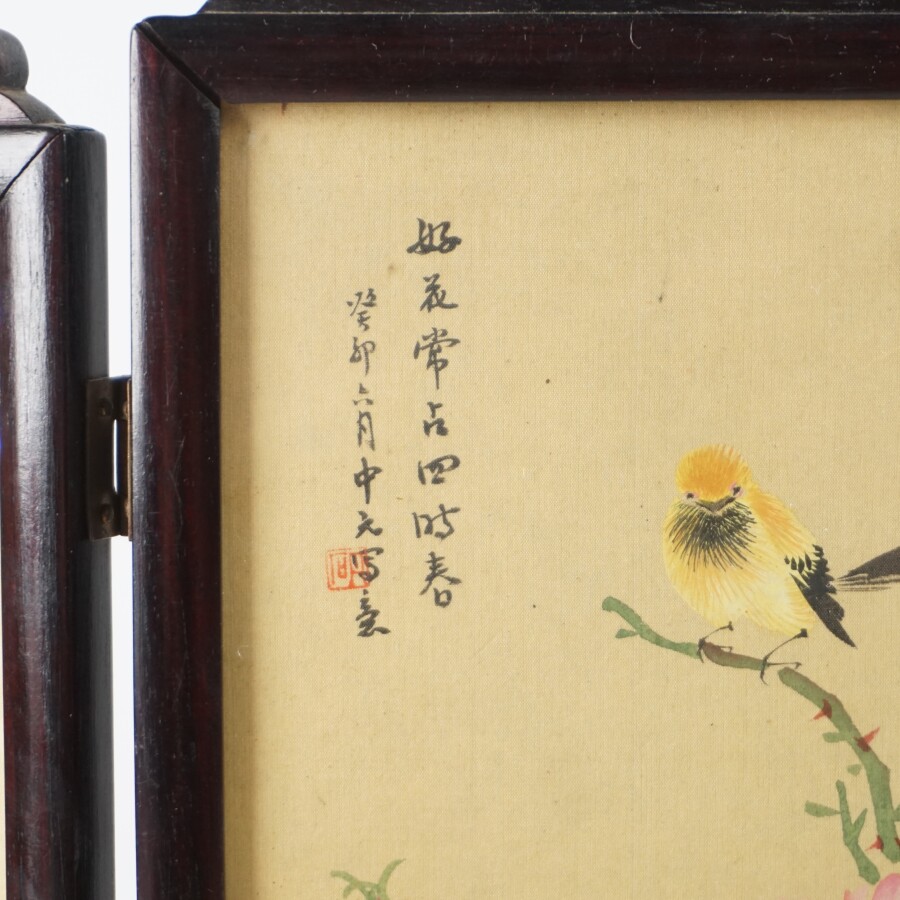 好花常占四時春
癸卯六月中元写意